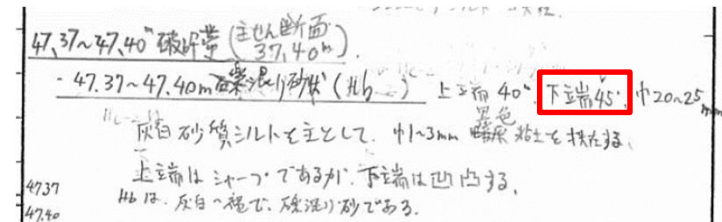 47.37~47.40m 破砕帯 (主せん断面 37.40m).
- 47.37~47.40m 礫混り砂状 (Hb ) 上端 40° 下端45°, 巾20~25mm
灰白砂質シルトを主とし、巾1~3mm 黒色 粘土を挟在する。
上端はシャープであるが、下端は凹凸する。
4737
47.40 Hbは、灰白~褐で、礫混り砂である。